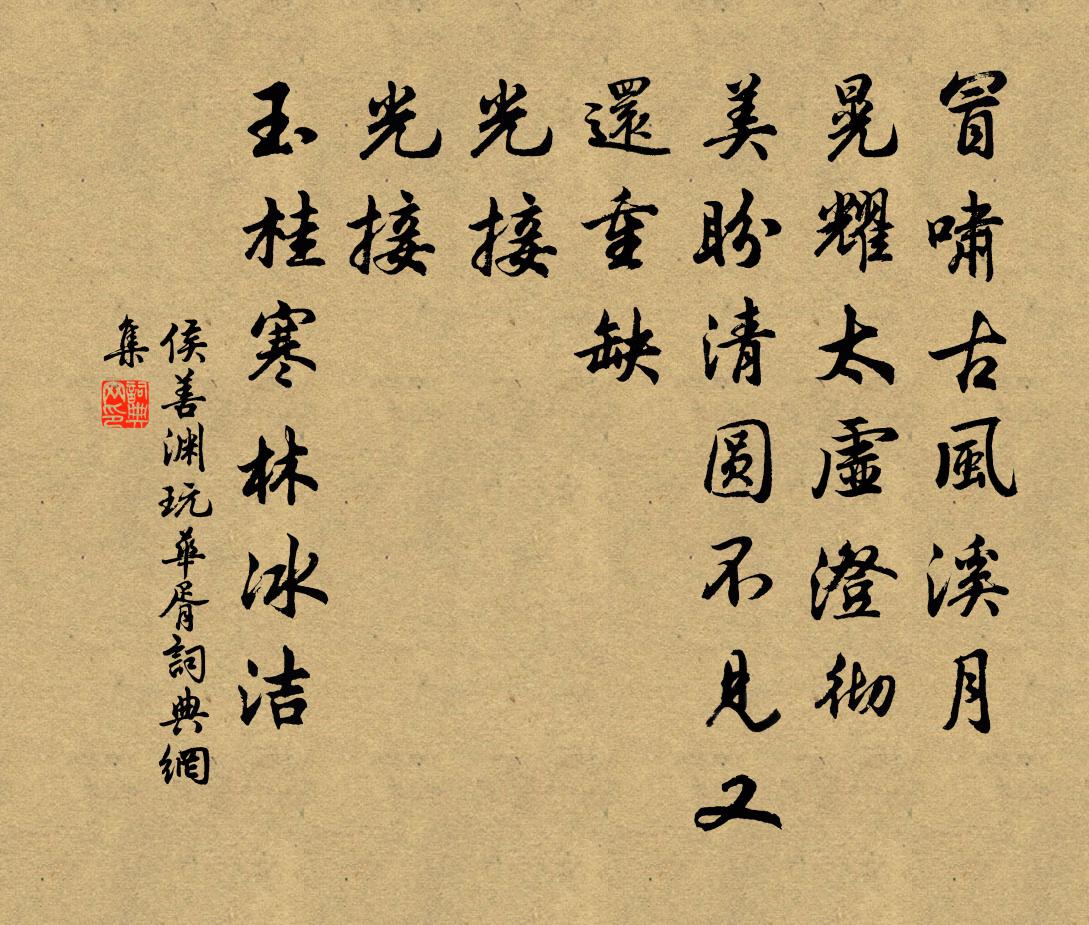 冒嘯古風溪月
晃耀太虛澄彻
美盼清圓不見又
還重缺
光接
光接
玉桂寒林冰洁
侯善渊玩華胥詞典網
集
詞典
网印